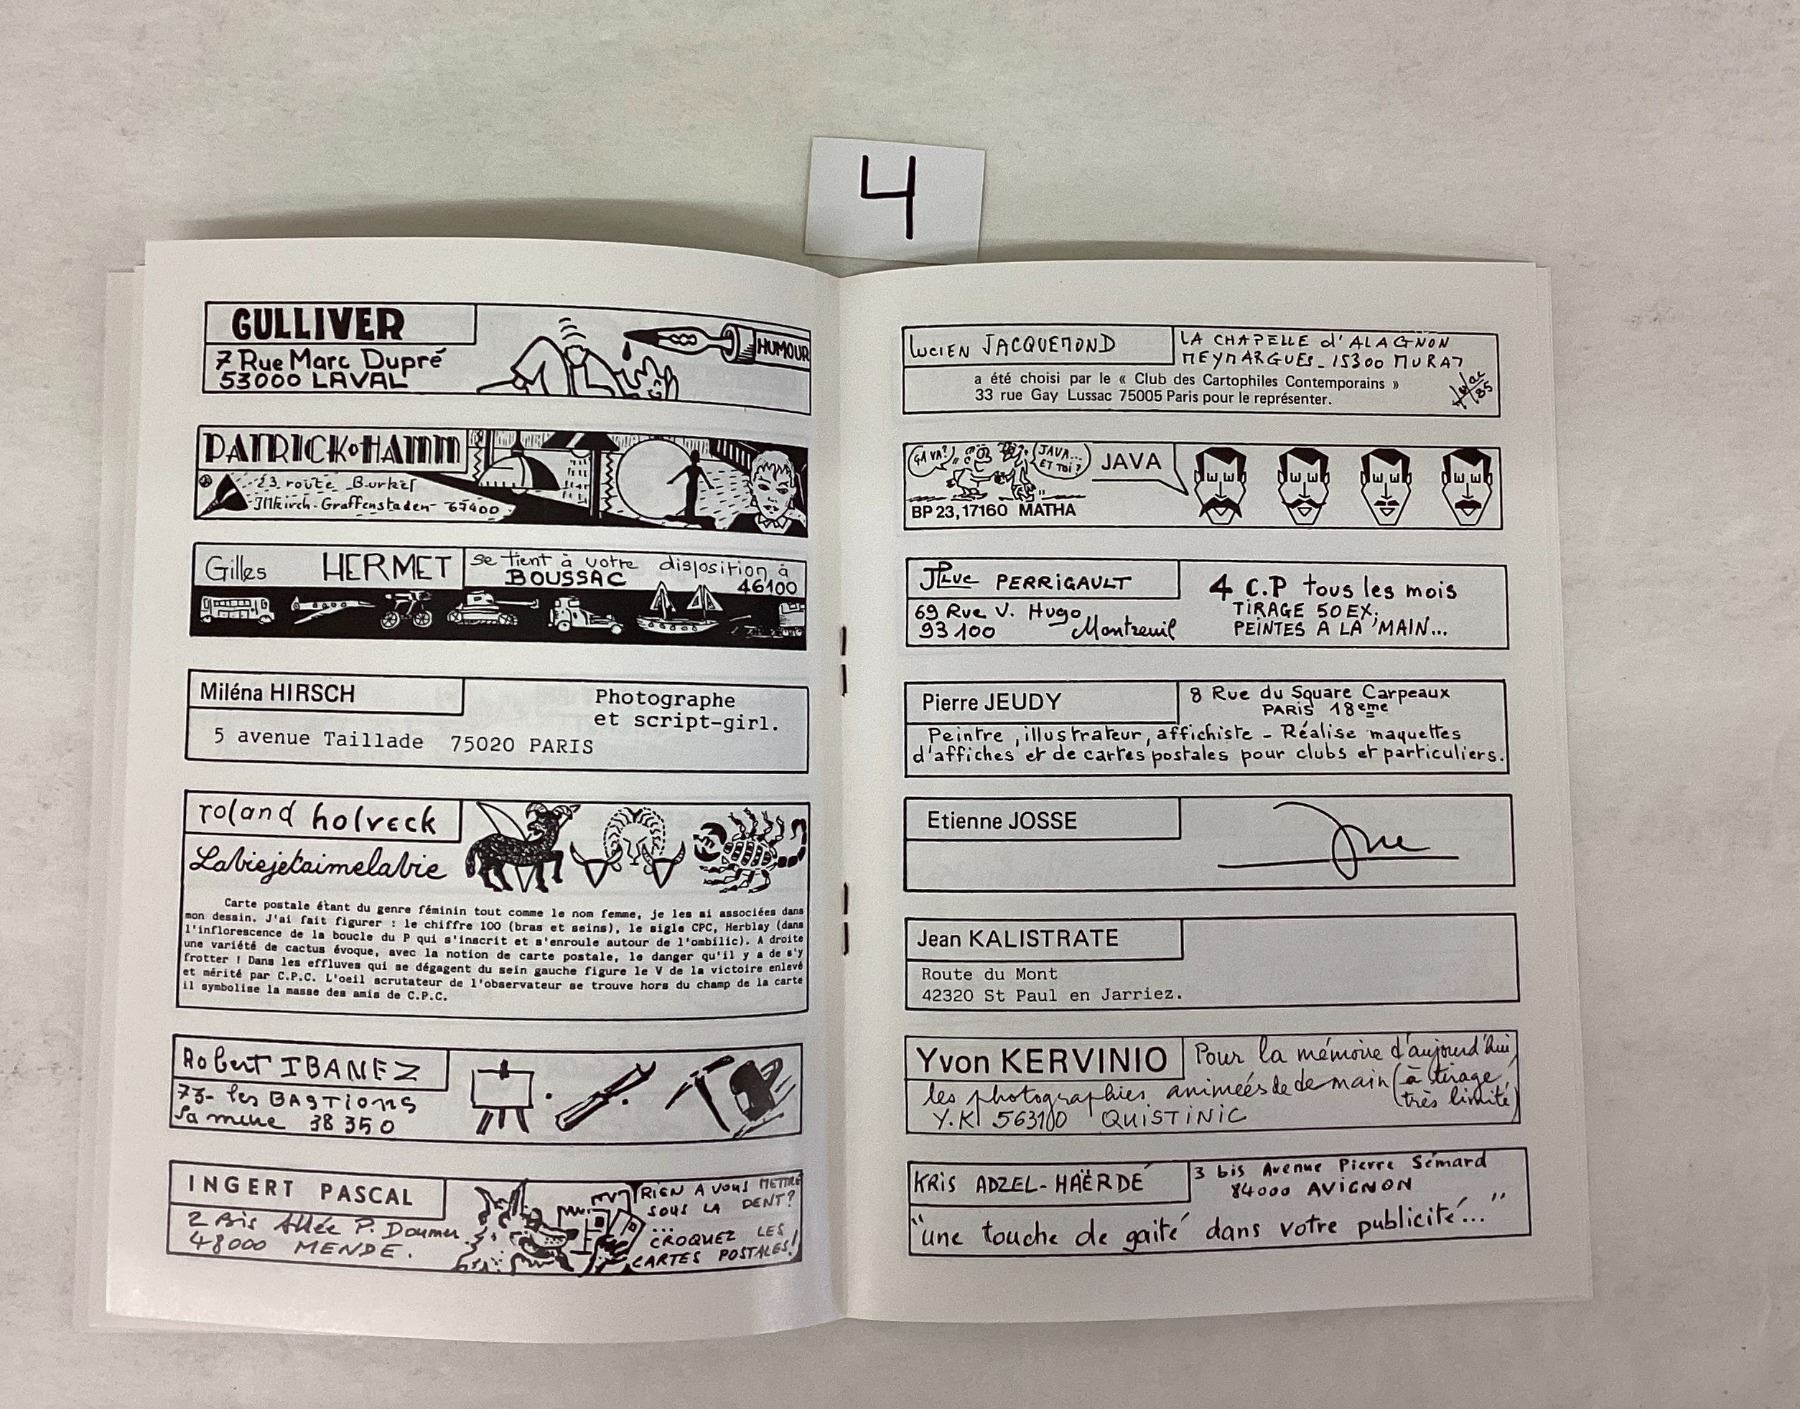 4
GULLIVER
7 Rue Marc Dupré
53000 LAVAL
HUMOUR
PATRICK HAMM
23 route Burkel
Illkirch-Graffenstaden 67400
Gilles HERMET
se tient à votre disposition à
BOUSSAC 46100
Miléna HIRSCH
Photographe
et script-girl.
5 avenue Taillade 75020 PARIS
roland holveck
Laviejetaimelavie
Carte postale étant du genre féminin tout comme le nom femme, je les ai associées dans
mon dessin. J'ai fait figurer : le chiffre 100 (bras et seins), le sigle CPC, Herblay (dans
l'inflorescence de la boucle du P qui s'inscrit et s'enroule autour de l'ombilic). A droite
une variété de cactus évoque, avec la notion de carte postale, le danger qu'il y a de s'y
frotter ! Dans les effluves qui se dégagent du sein gauche figure le V de la victoire enlevé
et mérité par C.P.C. L'oeil scrutateur de l'observateur se trouve hors du champ de la carte
il symbolise la masse des amis de C.P.C.
Robert IBANEZ
73- les BASTIONS
la mure 38350
INGERT PASCAL
2 Bis Allée P. Doumer.
48000 MENDE.
RIEN A VOUS METTRE
SOUS LA DENT?
...
CROQUEZ LES
CARTES POSTALES!
LUCIEN JACQUEMOND
LA CHAPELLE d'ALAGNON
MEYMARGUES_15300 MURAT
a été choisi par le « Club des Cartophiles Contemporains »
33 rue Gay Lussac 75005 Paris pour le représenter.
85
ÇA VA?
JAVA...
ET TOI?
JAVA
BP 23, 17160 MATHA
JPLuc PERRIGAULT
69 Rue V. Hugo
93100 Montreuil
4 C.P tous les mois
TIRAGE 50 EX;
PEINTES A LA MAIN...
Pierre JEUDY
8 Rue du Square Carpeaux
PARIS 18eme
Peintre, illustrateur, affichiste - Réalise maquettes
d'affiches et de cartes postales pour clubs et particuliers.
Etienne JOSSE
Jean KALISTRATE
Route du Mont
42320 St Paul en Jarriez.
Yvon KERVINIO
Pour la mémoire d'aujourd'hui
les photographies animées de demain (à tirage
très limité)
Y.K 563100 QUISTINIC
KRIS ADZEL-HAËRDÉ
3 bis Avenue Pierre Sémard
84000 AVIGNON
"une touche de gaité dans votre publicité..."